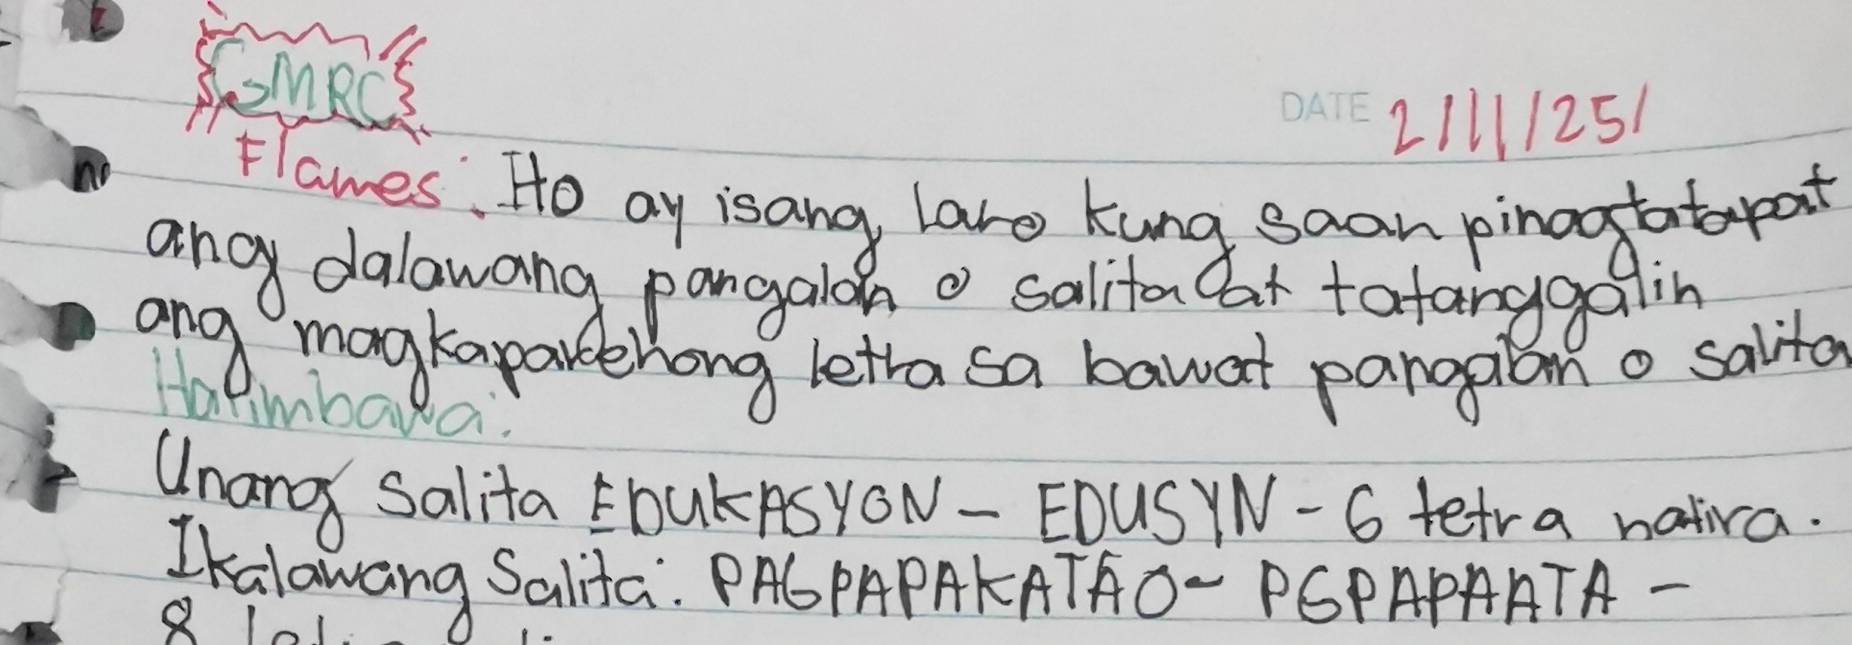 GMRC
DATE 2/11/25/
Flames: Ito ay isang laro kung saan pinagtatapat
ang dalawang pangalan o salita at tatanggalin
ang magkaparehong letra sa bawat pangalan o salita
Halimbawa:
Unang Salita EDUKASYON - EDUSYN - 6 letra natira.
Ikalawang Salita: PAGPAPAKATAO - PGPAPAATA -
8